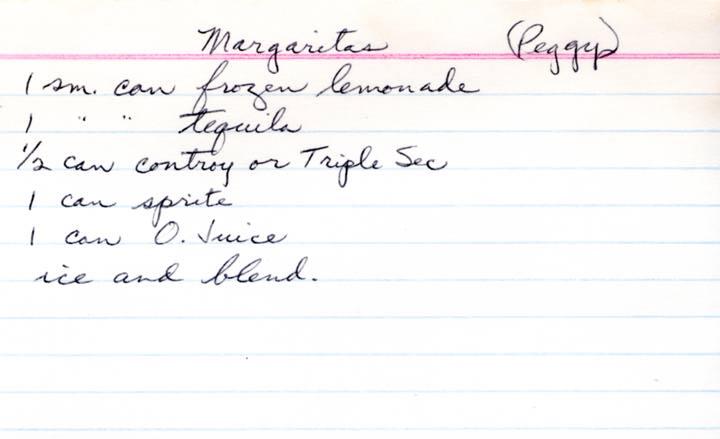 Margaritas (Peggy)
1 sm. can frozen lemonade
1 " " tequila
1/2 can controy or Triple Sec
1 can sprite
1 can O. Juice
ice and blend.